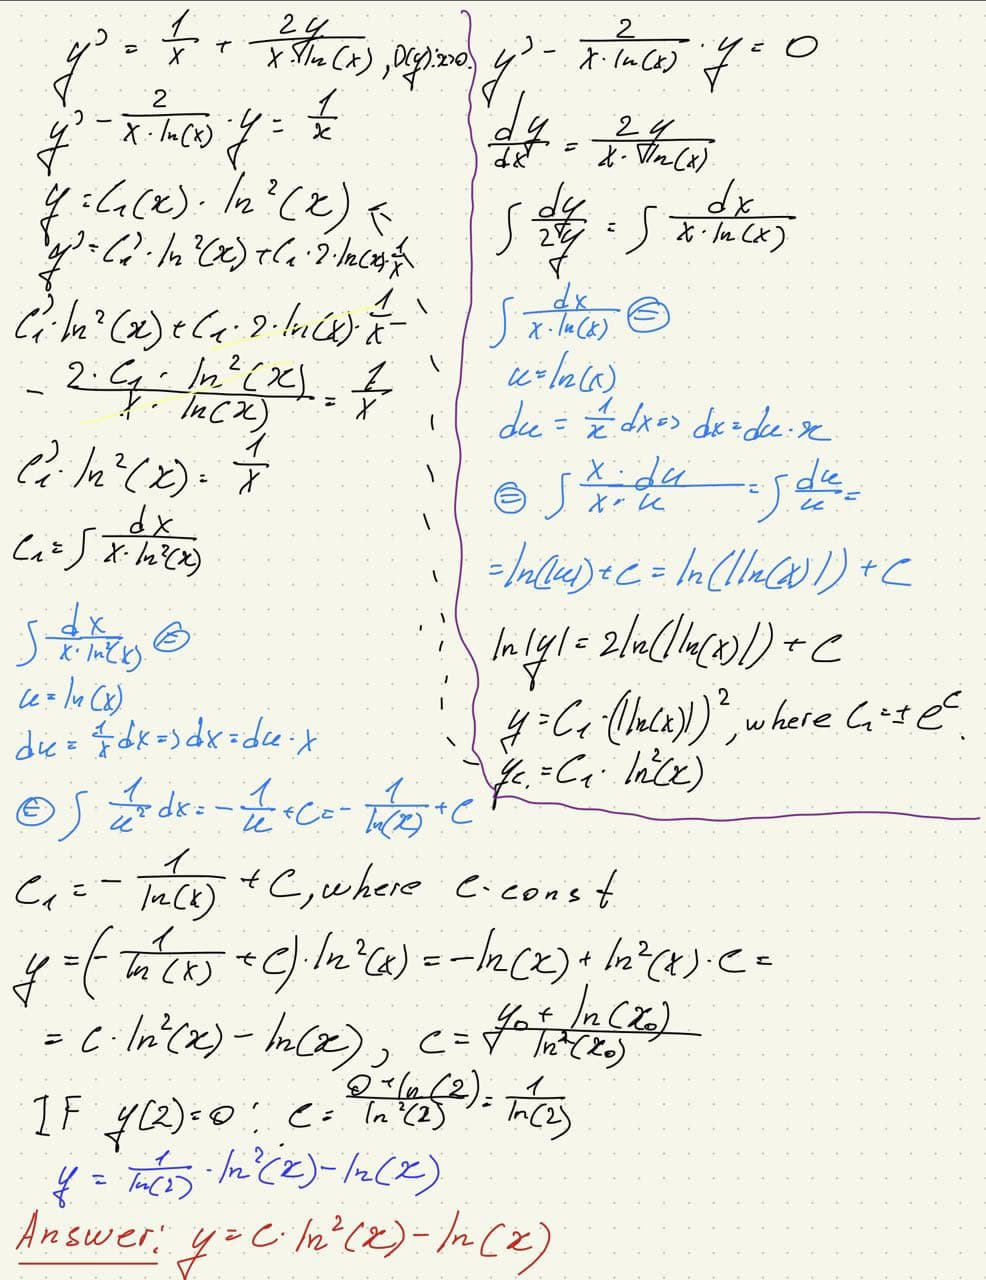 y' = 1/x + 2y/(x·ln(x)), D(y): x>0.
y' - 2/(x·ln(x)) · y = 1/x
y = C₁(x) · ln²(x) ←
y' = C₁' · ln²(x) + C₁ · 2 · ln(x) · 1/x
C₁' · ln²(x) + C₁ · 2 · ln(x) · 1/x -
- (2 · C₁ · ln²(x))/(x · ln(x)) = 1/x
C₁' · ln²(x) = 1/x
C₁ = ∫ dx/(x · ln²(x))
∫ dx/(x · ln²(x)) ⊜
u = ln(x)
du = 1/x dx => dx = du · x
⊜ ∫ 1/u² dx = - 1/u + C = - 1/ln(x) + C
y' - 2/(x · ln(x)) · y = 0
dy/dx = 2y/(x · ln(x))
∫ dy/2y = ∫ dx/(x · ln(x))
∫ dx/(x · ln(x)) ⊜
u = ln(x)
du = 1/x dx => dx = du · x
⊜ ∫ (x · du)/(x · u) = ∫ du/u =
= ln(|u|) + C = ln(|ln(x)|) + C
ln|y| = 2ln(|ln(x)|) + C
y = C₁ · (|ln(x)|)², where C₁ = ± e^C.
y_c. = C₁ · ln²(x)
C₁ = - 1/ln(x) + C, where C - const
y = (- 1/ln(x) + C) · ln²(x) = -ln(x) + ln²(x) · C =
= C · ln²(x) - ln(x), C = (y₀ + ln(x₀))/ln²(x₀)
IF y(2) = 0 : C = (0 + ln(2))/ln²(2) = 1/ln(2)
y = 1/ln(2) · ln²(x) - ln(x)
Answer: y = C · ln²(x) - ln(x)